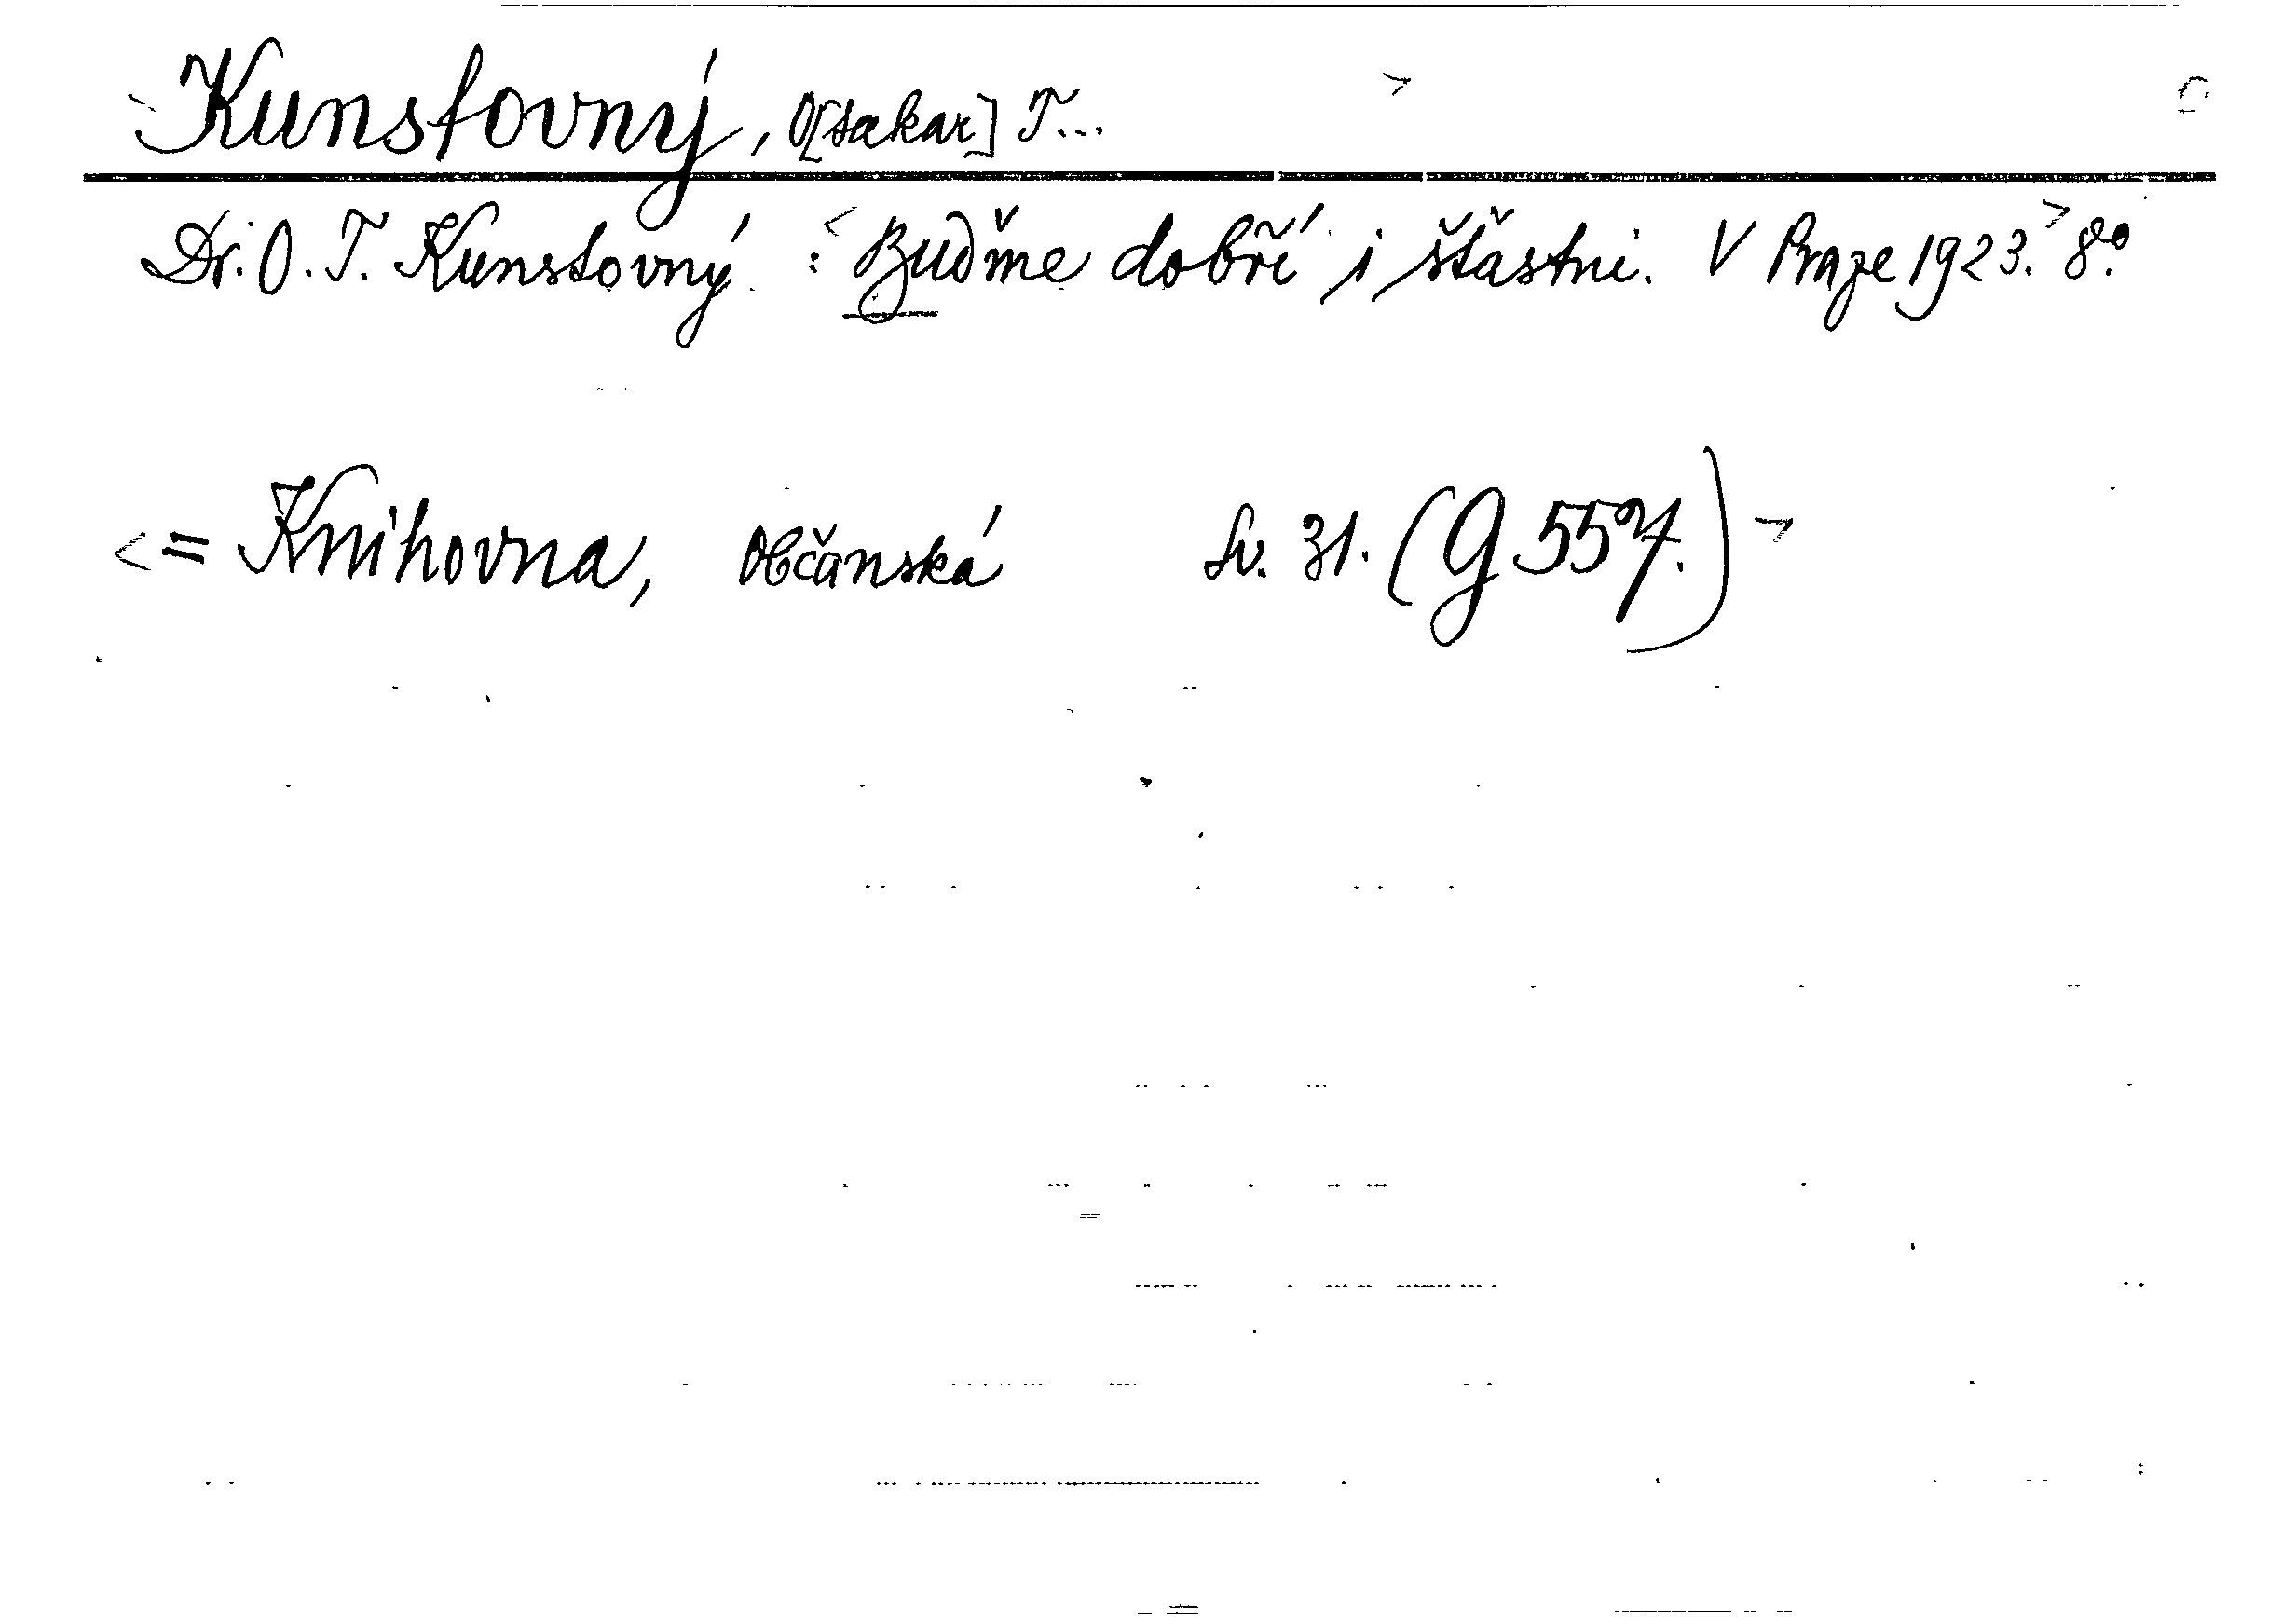 Kunstovný, O[takar] T...
Dr. O. T. Kunstovný: <Buďme dobří i šťastni. V Praze 1923.> 8°.
<= Knihovna, občanská Sv. 31. (G 557.)>